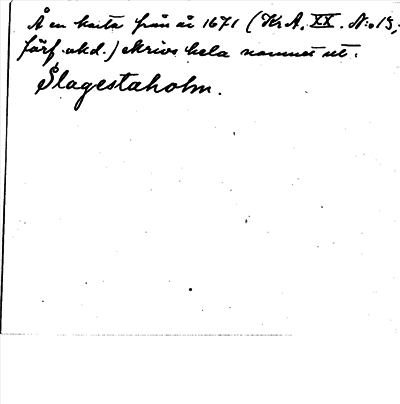 Å en karta från år 1671 (Kr. A. XX. N:o 15;
förf. okd.) skrives hela namnet ut:
Slagestaholm.